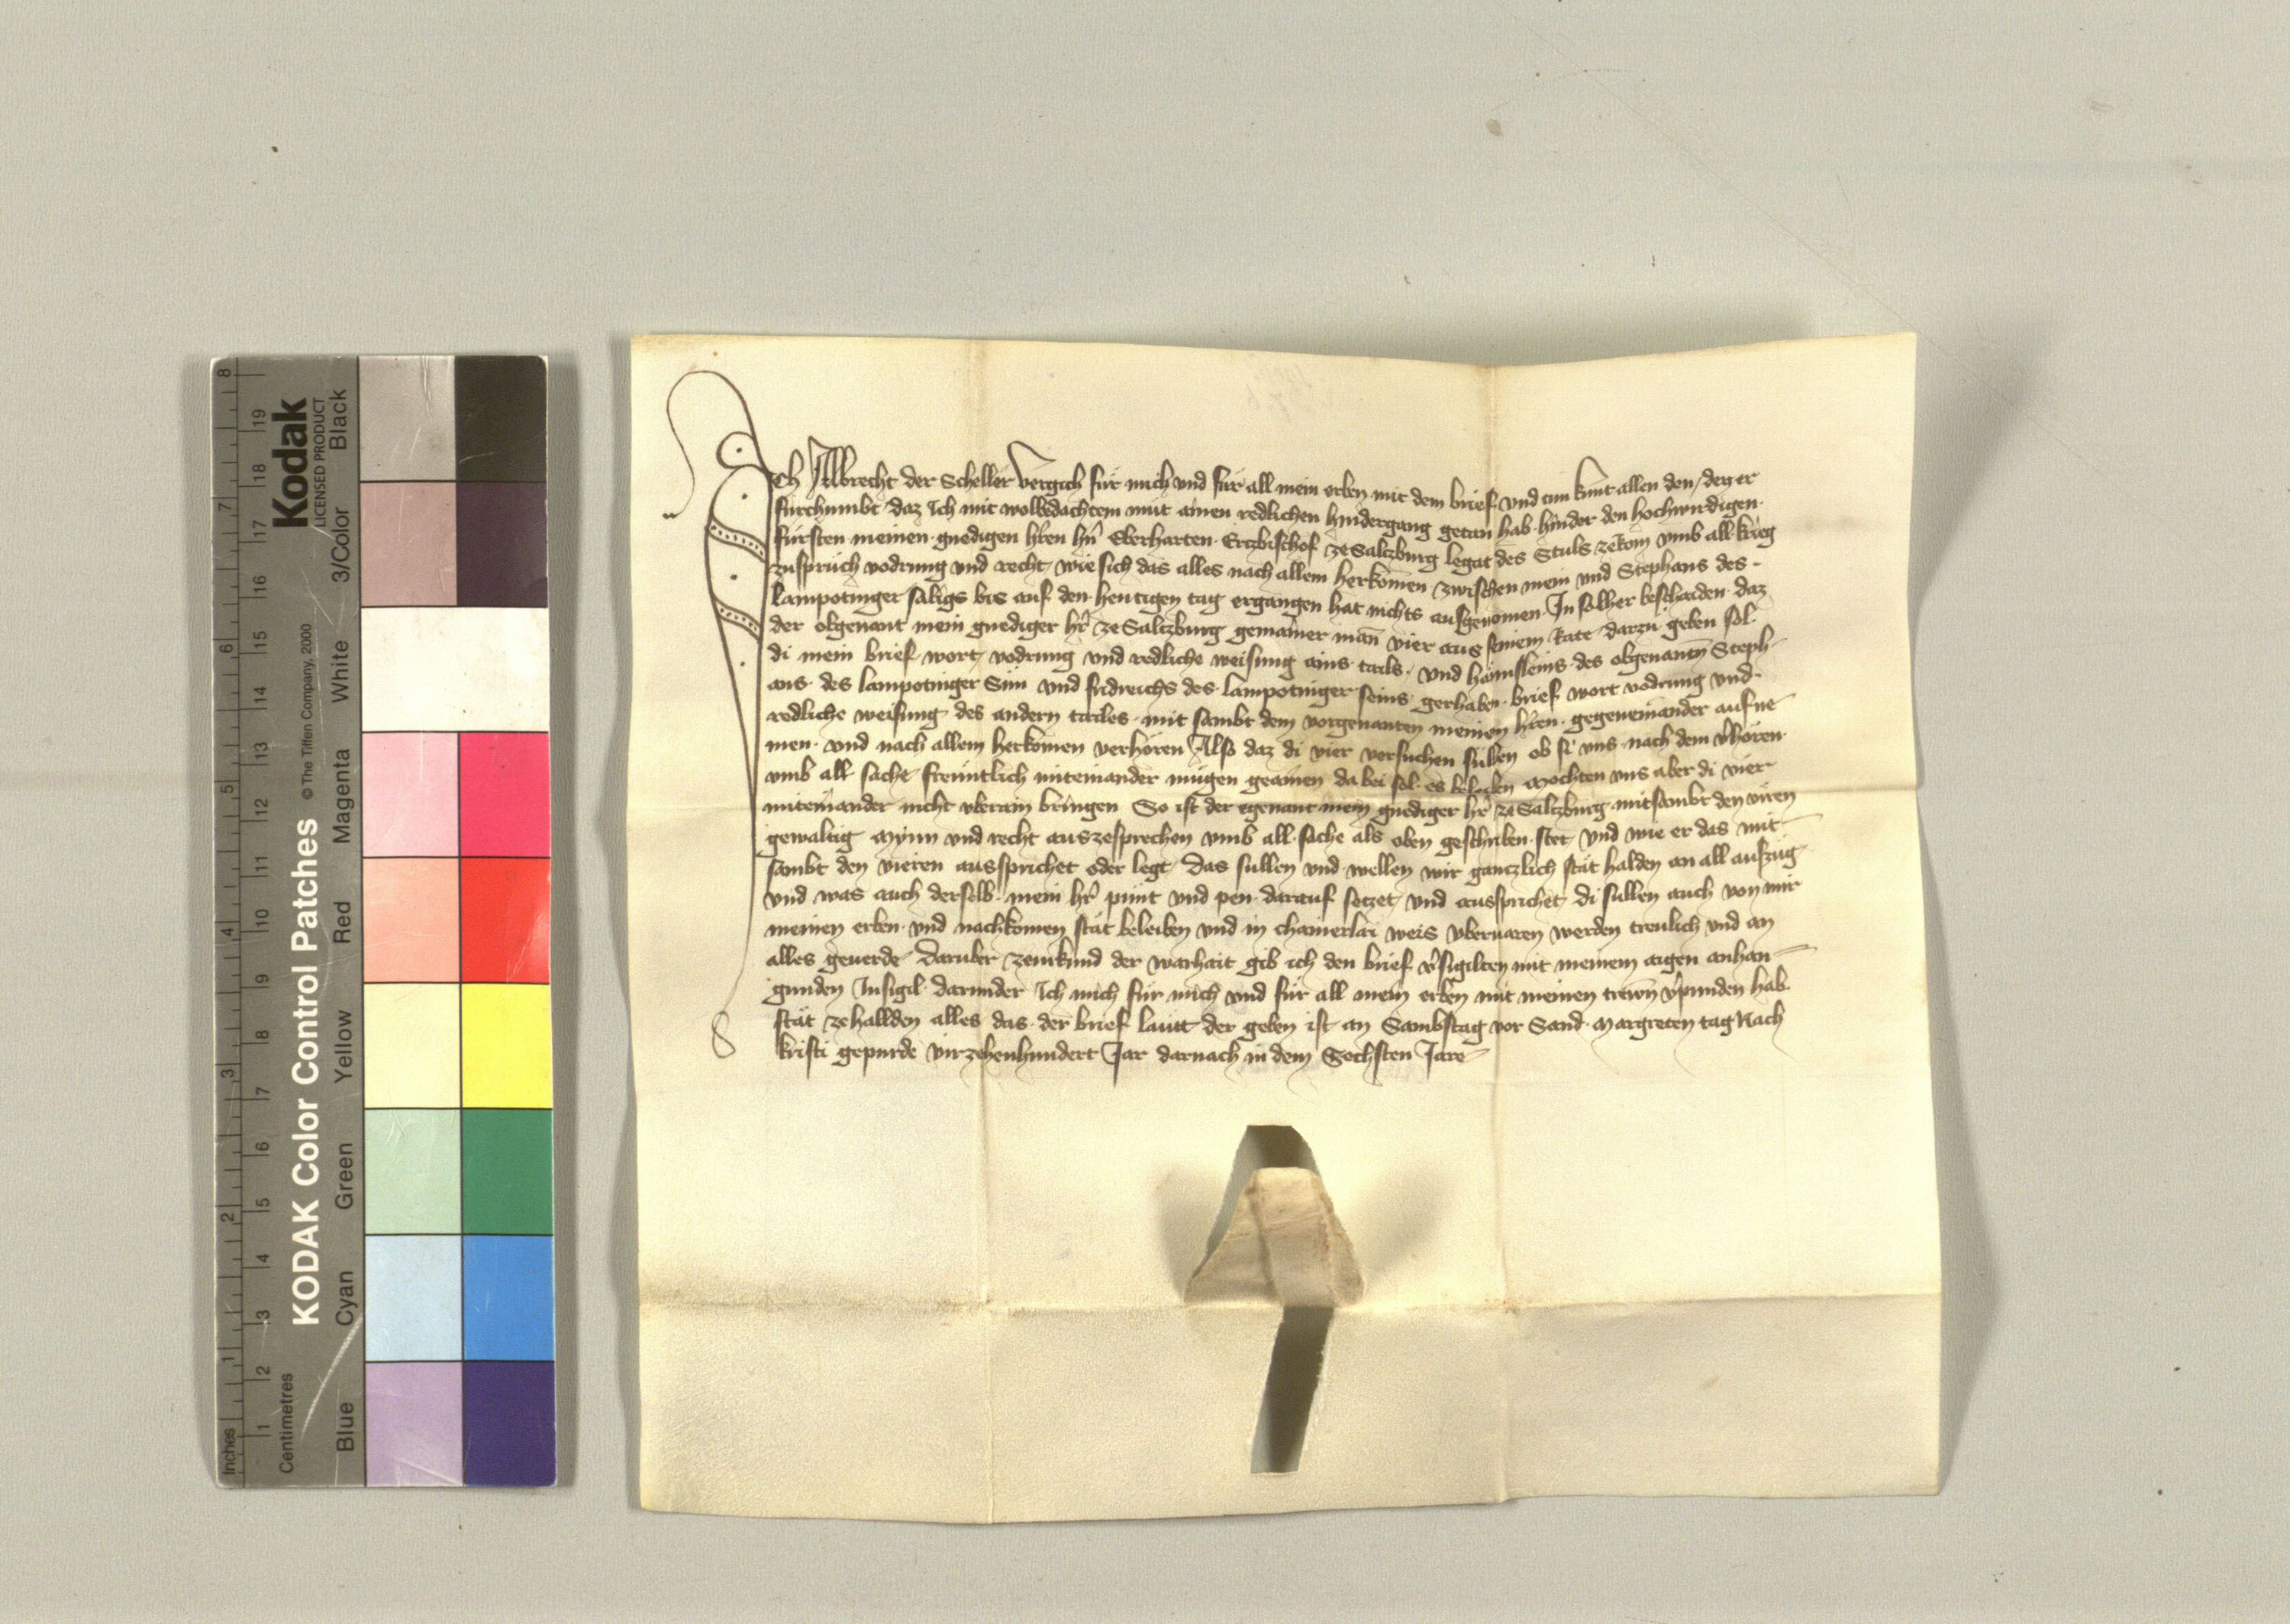 Ich Albrecht der Scheller vergich für mich vnd für all mein erben mit dem brief vnd tun kunt allen den, den er
fürchumbt, daz Ich mit wolbedachtem müt ainen redlichen hindergang getan hab hinder den hochwirdigen
fürsten meinen gnedigen hren hn Eberharten Ertzbischof ze Saltzburg legat des Stuls ze Rom vmb all krieg
zuspruch vodrung vnd recht, wie sich das alles nach allem herkomen zwischen mein vnd Stephans des
lampotinger saligs bis auf den hewtigen tag ergangen hat nichts ausgenomen In solher beschaiden daz
der obgenant mein gnediger hr ze Saltzburg gemainer man vier aus seinem Rate darzu geben sol
di mein brief wort, vodrung vnd redliche weisung ains tails, vnd hännsleins des obgenantn Steph-
ans des lampotinger Sün vnd fridreichs des lampotinger seins gerhaben brief wort vodrung vnd
redliche weisung des andern tailes mit sambt dem vorgenanten meinen hren gegeneinander aufne
men vnd nach allem herkomen verhören Also daz di vier versuchen süllen ob si vns nach dem vhören
vmb all sache frewntlich miteinander mügen geainen da bei sol es beleiben Mochten vns aber di vier
miteinander nicht vberain bringen So ist der egenant mein gnediger hr ze Saltzburg mitsambt den viren
gewaltig Mynn vnd recht auszesprechen vmb all sache als oben geschriben stet, vnd wie er das mit
sambt den vieren ausprichet oder legt, das sullen vnd wellen wir gantzlich stät halden an all aufzüg
vnd was auch derselb mein hr pünt vnd pen darauf setzet, vnd ausprichet, di sullen auch von mir
meinen erben vnd nachkomen stät beleiben vnd in chainerlai weis vberuaren werden trewlich vnd an
alles geuerde Daruber zeurkund der warhait gib ich den brief vsigilten mit meinem aigen anhan-
gunden Insigil darunder Ich mich für mich vnd für all mein erben mit meinen trewn vpunden hab
stät ze hallden alles das der brief lautt der geben ist an Sambstag vor Sand Margreten tag Nach
kristi gepurde virzehenhundert Jar darnach in dem Sechsten Jare
Kodak
LICENSED PRODUCT
KODAK Color Control Patches
© The Tiffen Company, 2000
Black
3/Color
White
Magenta
Red
Yellow
Green
Cyan
Blue
Inches
1 2 3 4 5 6 7 8
Centimetres
1 2 3 4 5 6 7 8 9 10 11 12 13 14 15 16 17 18 19